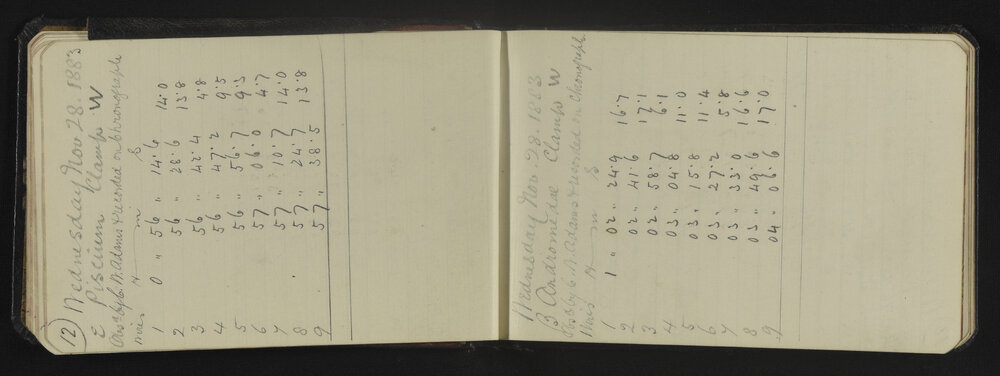 (12) Wednesday Nov 28. 1883
ε Piscium Clamp W
Obsd by C. W. Adams & recorded on Chronograph
Wires H m S
1 0 " 56 " 14.6 14.0
2 56 " 28.6 13.8
3 56 " 42.4 4.8
4 56 " 47.2 9.5
5 56 " 56.7 9.3
6 57 " 06.0 4.7
7 57 " 10.7 14.0
8 57 " 24.7 13.8
9 57 " 38.5
Wednesday Nov 28. 1883
β Andromedae Clamp W
Obsd by C. W. Adams & recorded on Chronograph
Wires H m S
1 1 " 02 " 24.9 16.7
2 02 " 41.6 17.1
3 02 " 58.7 6.1
4 03 " 04.8 11.0
5 03 " 15.8 11.4
6 03 " 27.2 5.8
7 03 " 33.0 16.6
8 03 " 49.6 17.0
9 04 " 06.6